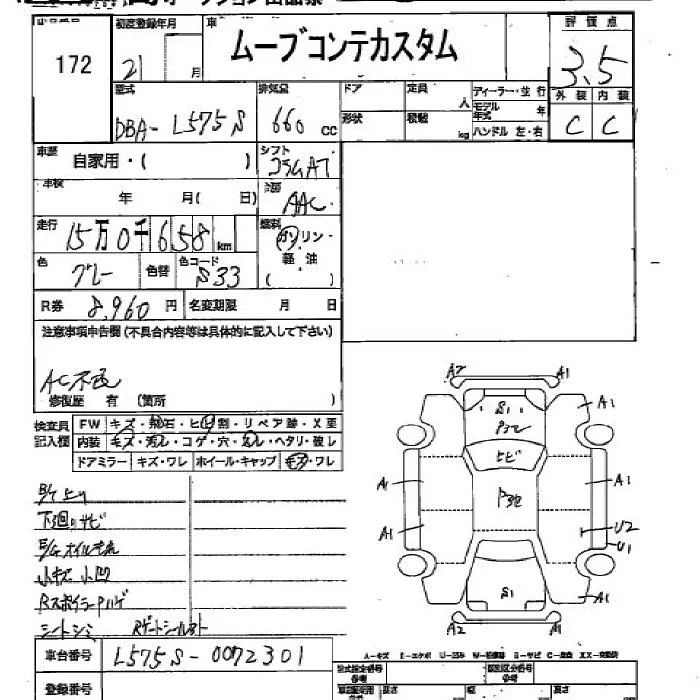 初度登録年月 車 評価点
172 21 月 ムーブコンテカスタム 3.5
型式 排気量 ドア 定員 人 ディーラー・並行 外装 内装
DBA- L575S 660 CC 形状 積載 kg モデル年式 年 C C
ハンドル 左・右
車歴 自家用・( ) シフト コラムAT
車検 年 月( 日) AAC
走行 15万0千658 km 燃料 ガソリン・
色 グレー 色替 色コード S33 軽油
( )
R券 8,960 円 名変期限 月 日
注意事項申告欄(不具合内容等は具体的に記入して下さい)
AC不良
修復歴 有 (箇所 )
検査員 FW キズ・飛石・ヒビ割・リペア跡・X要
記入欄 内装 キズ・汚れ・コゲ・穴・スレ・ヘタリ・破レ
ドアミラー キズ・ワレ ホイール・キャップ キズ・ワレ
下廻りサビ
E/Gオイルモレ
小キズ 小凹
RスポイラーPハゲ
シートシミ
A2 A1
S1 A1
P32
ヒビ
A1 P32 A1
A1 U2
U1
S1 A1
A2 A1
A-キズ E-エクボ U-凹み W-補修跡 S-サビ C-腐蝕 XX-交換済
車台番号 L575S-0072301
登録番号 型式指定番号 類別区分番号
参考 参考
長さ 幅 高さ